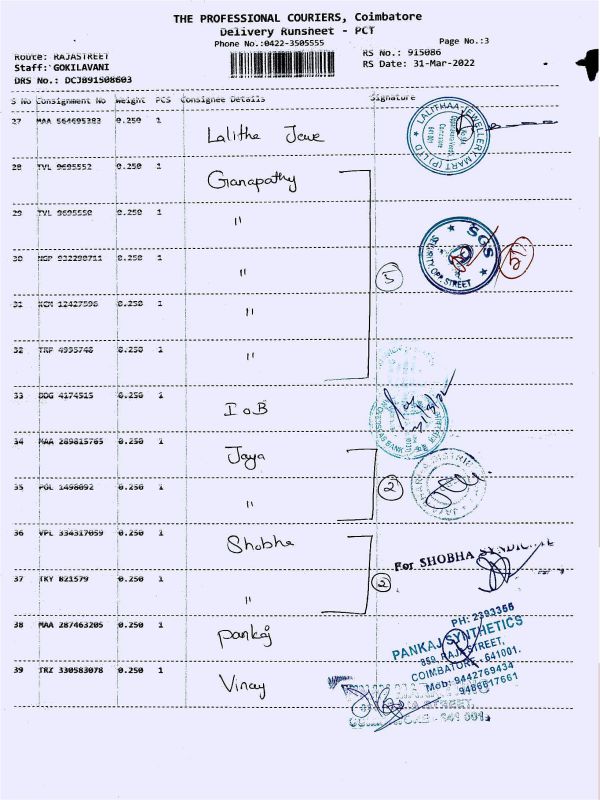 THE PROFESSIONAL COURIERS, Coimbatore
Delivery Runsheet - PCT
Phone No.:0422-3505555
Page No.:3
Route: RAJASTREET
RS No.: 915086
Staff: GOKILAVANI
RS Date: 31-Mar-2022
DRS No.: DCJ891508603
S No Consignment No Weight PCS Consignee Details Signature
27 MAA 564695383 0.250 1 Lalitha Jewe
LALITHAA JEWELLERY MART (P) LTD
28 TVL 9695552 0.250 1 Ganapathy
29 TVL 9695550 0.250 1 "
SGS
STREET
30 NGP 932298711 0.250 1 "
5
31 KCM 12427596 0.250 1 "
32 TRP 4995748 0.250 1 "
33 DDG 4174515 0.250 1 IOB
34 MAA 289815765 0.250 1 Jaya
2
35 PGL 1498092 0.250 1 "
36 VPL 334317059 0.250 1 Shobha
For SHOBHA SYNDICATE
37 TKY 821579 0.250 1 "
2
38 MAA 287463205 0.250 1 Pankaj
PH: 2393355
PANKAJ SYNTHETICS
859, RAJA STREET,
COIMBATORE - 641001.
Mob: 9442769434
9486617661
39 TRZ 330583078 0.250 1 Vinay
STREET,
641 001.